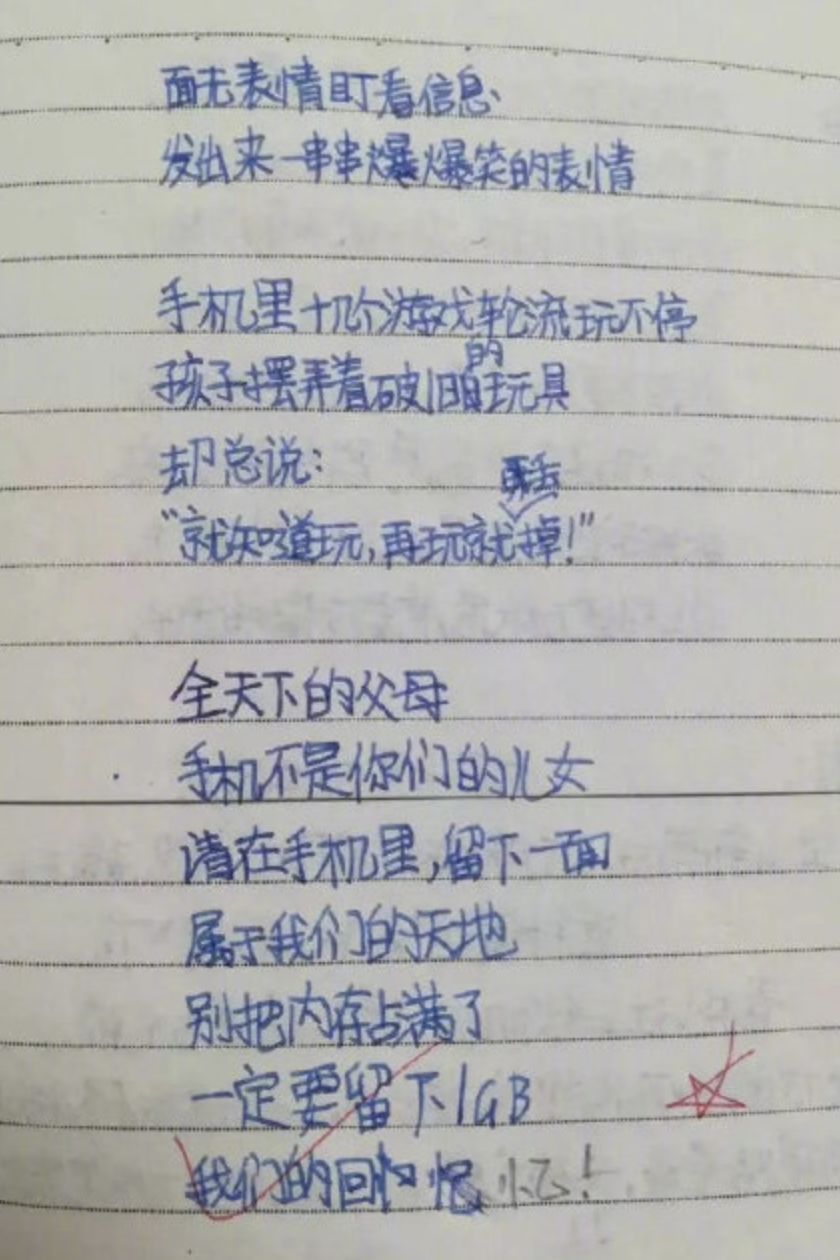 面无表情盯看信息
发出来一串串爆爆笑的表情
手机里十几个游戏轮流玩不停
孩子摆弄着破旧的玩具
却总说:
“就知道玩,再玩就丢掉!”
全天下的父母
手机不是你们的儿女
请在手机里,留下一面
属于我们的天地
别把内存占满了
一定要留下1GB
我们的回忆!